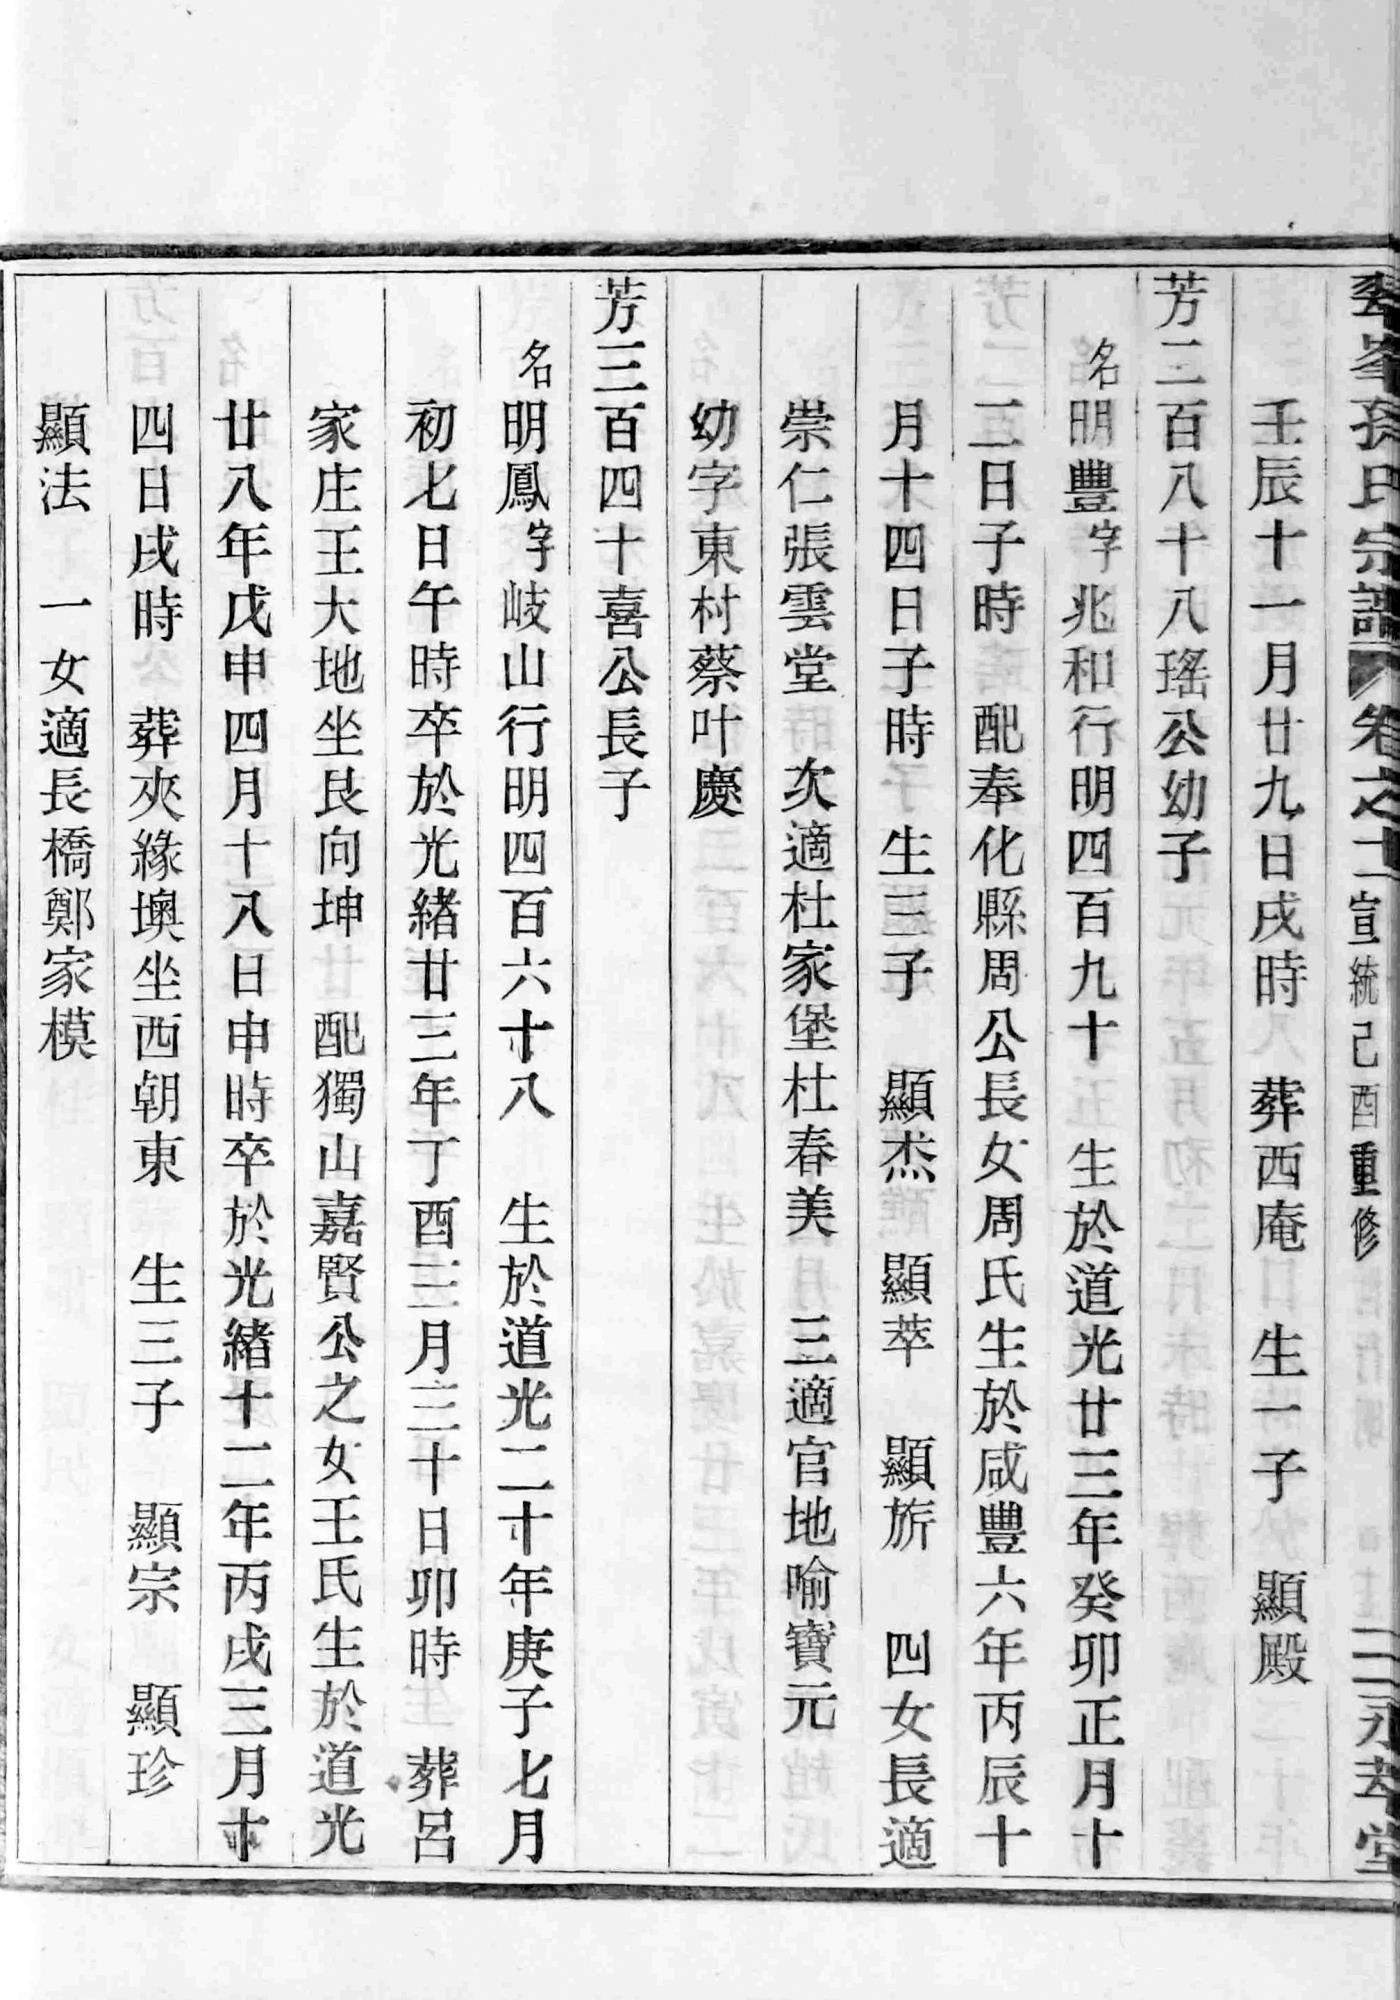 峯孫氏宗譜 卷之十一 宣統己酉重修 二 永孝堂
壬辰十一月廿九日戌時 葬西庵 生一子 顯殿
芳二百八十八瑤公幼子
名明豐字兆和行明四百九十 生於道光廿三年癸卯正月十
二日子時 配奉化縣周公長女周氏生於咸豐六年丙辰十
月十四日子時 生三子 顯杰 顯萃 顯旂 四女長適
崇仁張雲堂 次適杜家堡杜春美 三適官地喻寶元
幼字東村蔡叶慶
芳三百四十喜公長子
名明鳳字岐山行明四百六十八 生於道光二十年庚子七月
初七日午時卒於光緒廿三年丁酉三月三十日卯時 葬呂
家庄王大地坐艮向坤 配獨山嘉賢公之女王氏生於道光
廿八年戊申四月十八日申時卒於光緒十二年丙戌三月十
四日戌時 葬夾緣墺坐西朝東 生三子 顯宗 顯珍
顯法 一女適長橋鄭家模